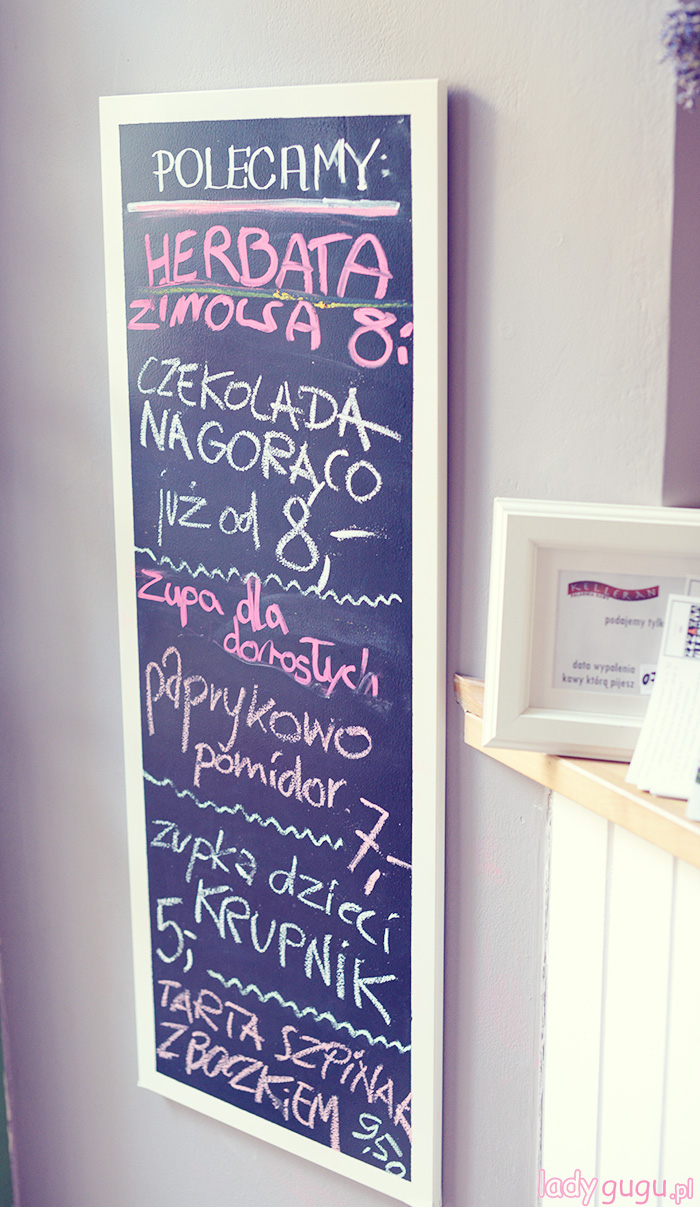 POLECAMY:
HERBATA
ZIMOWA 8;
CZEKOLADA
NA GORĄCO
już od 8,-
zupa dla
dorosłych
paprykowo
pomidor. 7,-
zupka dzieci
KRUPNIK
5,-
TARTA SZPINAK
Z BOCZKIEM
9,50
podajemy tylk
data wypalenia
kawy którą pijesz
ladygugu.pl